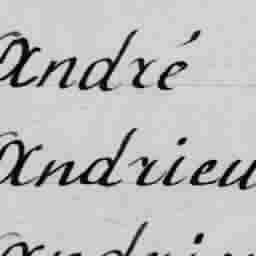 André
Andrieu